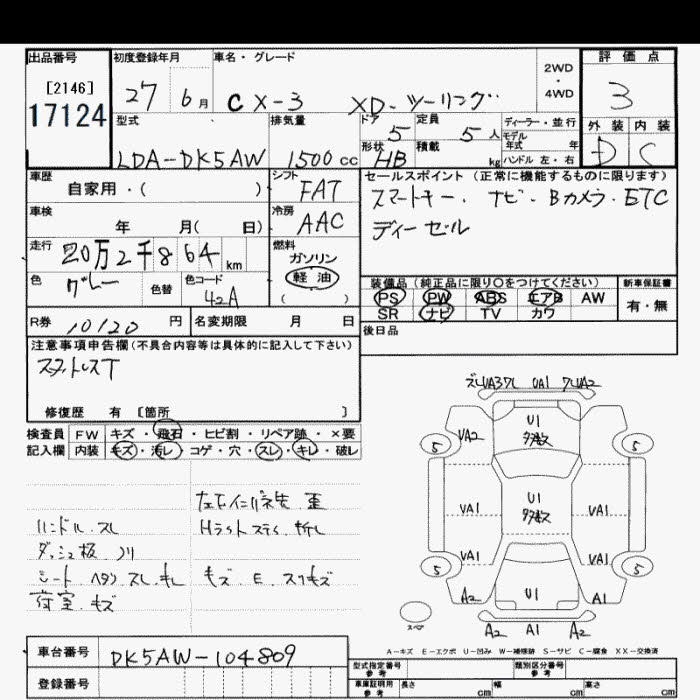 出品番号
[2146]
17124
初度登録年月
27 6月
車名・グレード
CX-3 XD-ツーリング
2WD
・
4WD
評価点
3
外装 内装
D C
型式
LDA-DK5AW
排気量
1500cc
ドア
5
定員
5人
形状
HB
積載
kg
ディーラー・並行
モデル
年式 年
ハンドル 左・右
車歴
自家用・( )
シフト
FAT
車検
年 月( 日)
冷房
AAC
走行
20万2千864km
燃料
ガソリン
軽油
( )
色
グレー
色替
色コード
42A
セールスポイント(正常に機能するものに限ります)
スマートキー・ナビ・Bカメラ・ETC
ディーゼル
装備品(純正品に限り〇をつけてください)
PS PW ABS エアB AW
SR ナビ TV カワ
新車保証書
有・無
R券
10120円
名変期限 月 日
後日品
注意事項申告欄(不具合内容等は具体的に記入して下さい)
修復歴 有 [箇所 ]
検査員 FW キズ・飛石・ヒビ割・リペア跡・×要
記入欄 内装 キズ・汚レ・コゲ・穴・スレ・キレ・破レ
ハンドル.スレ
ダッシュ板
シート ヘタリ スレ.キレ
荷室.キズ
キズ.E.スリキズ
UA1
UA2
U1
タタキズ
UA2
5
5
U1
タタキズ
UA1
UA1
UA1
UA1
5
5
U1
A2
A1
A2 A1 A2
スペア
A-キズ E-エクボ U-凹み W-補修跡 S-サビ C-腐食 XX-交換済
車台番号
DK5AW-104809
登録番号
型式指定番号
参考
類別区分番号
参考
車庫証明用
参考
長さ cm 幅 cm 高さ cm